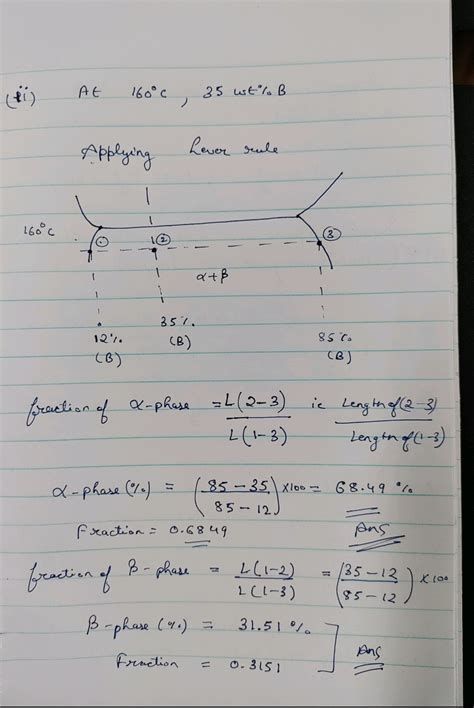 (ii) At 160°C, 35 wt% B
Applying Lever rule
160°C
① ② ③
α+β
12% 35% 85%
(B) (B) (B)
fraction of α-phase = L(2-3) / L(1-3) ie Length of (2-3) / Length of (1-3)
α-phase (%) = (85-35 / 85-12) × 100 = 68.49 %
Fraction = 0.6849 Ans
fraction of β-phase = L(1-2) / L(1-3) = (35-12 / 85-12) × 100
β-phase (%) = 31.51 %
Fraction = 0.3151 Ans